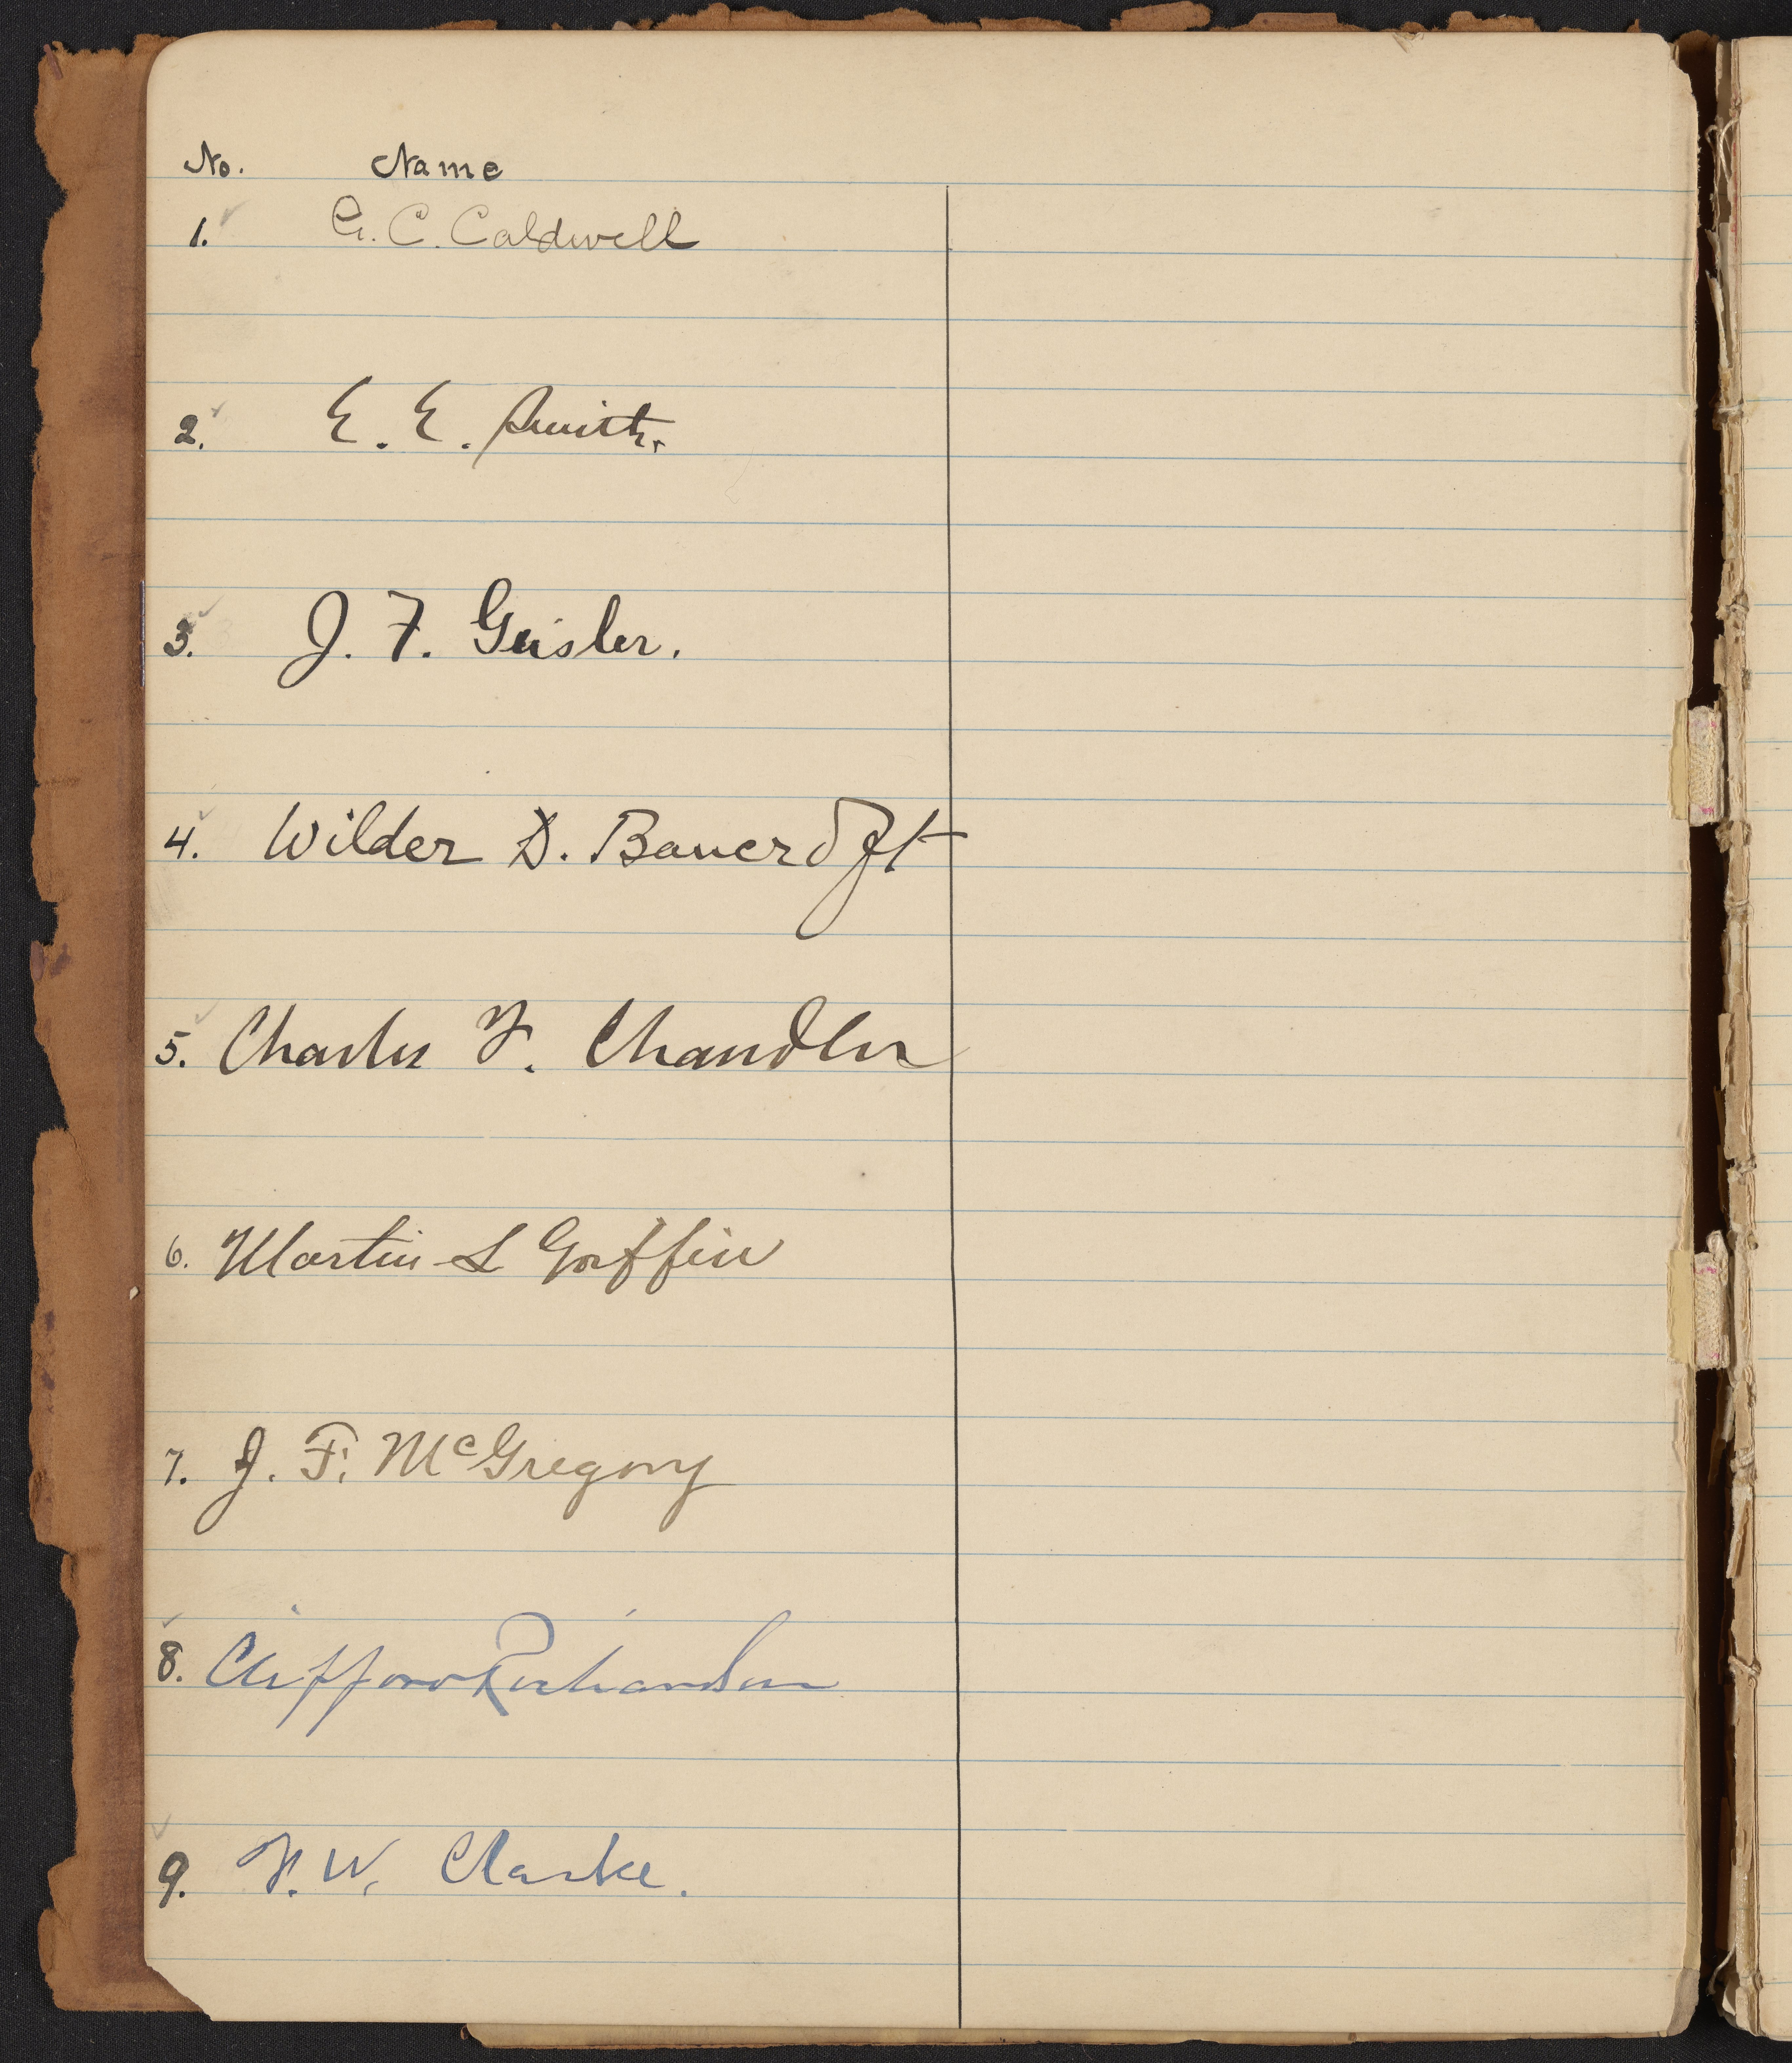 No. Name
1. G. C. Caldwell
2. E. E. Smith.
3. J. F. Geisler.
4. Wilder D. Bancroft
5. Charles F. Chandler
6. Martin L Griffin
7. J. F. McGregory
8. Clifford Richardson
9. F. W. Clarke.